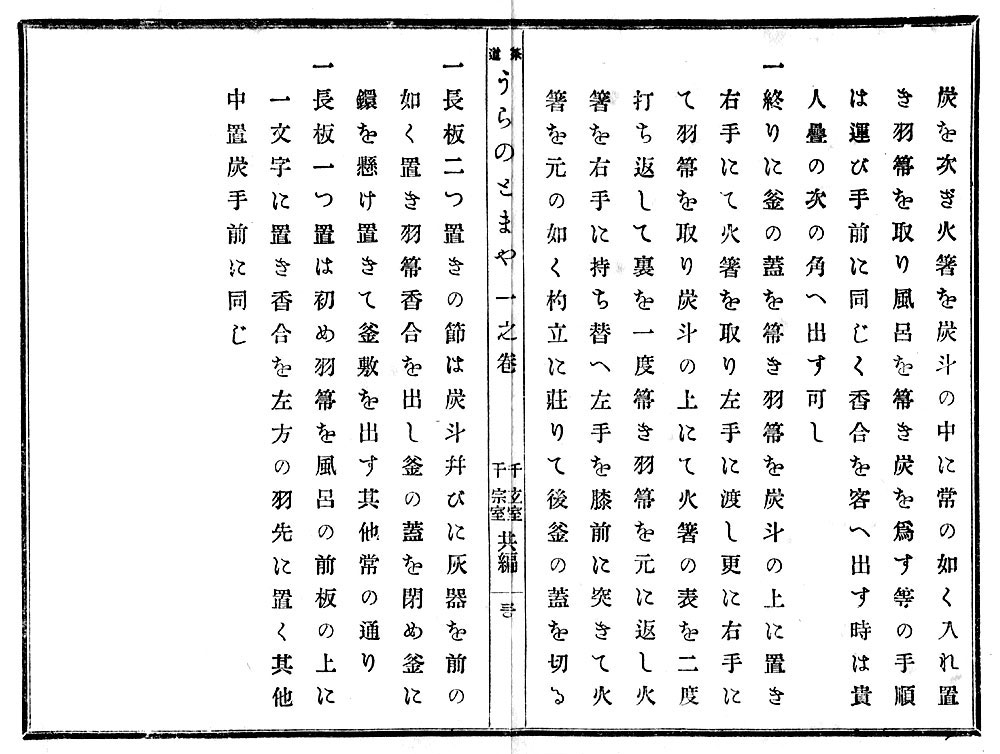 炭を次ぎ火箸を炭斗の中に常の如く入れ置
き羽箒を取り風呂を箒き炭を爲す等の手順
は運び手前に同じく香合を客へ出す時は貴
人疊の次の角へ出す可し
一終りに釜の蓋を箒き羽箒を炭斗の上に置き
右手にて火箸を取り左手に渡し更に右手に
て羽箒を取り炭斗の上にて火箸の表を二度
打ち返して裏を一度箒き羽箒を元に返し火
箸を右手に持ち替へ左手を膝前に突きて火
箸を元の如く杓立に莊りて後釜の蓋を切る
茶道 うらのとまや 一之卷
千玄室
千宗室
共編
一長板二つ置きの節は炭斗幷びに灰器を前の
如く置き羽箒香合を出し釜の蓋を閉め釜に
鐶を懸け置きて釜敷を出す其他常の通り
一長板一つ置は初め羽箒を風呂の前板の上に
一文字に置き香合を左方の羽先に置く其他
中置炭手前に同じ